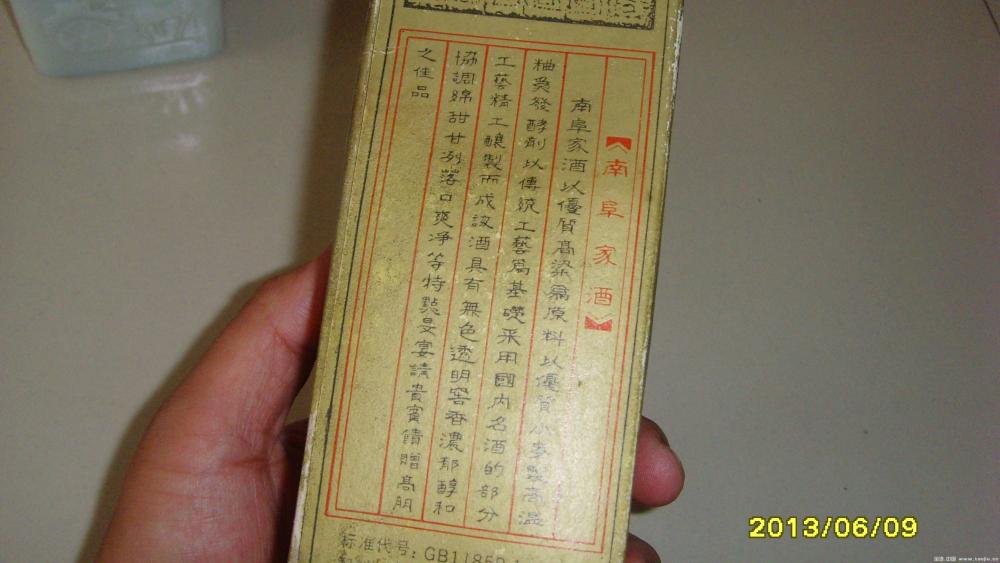 【南阜家酒】
南阜家酒以優質高粱爲原料以優質小麥製高温
粬爲發酵劑以傳統工藝爲基礎采用國内名酒的部分
工藝精工釀製而成該酒具有無色透明窖香濃郁醇和
協調綿甜甘列落口爽净等特點是宴請貴賓饋贈高朋
之佳品
标准代号：GB1185
2013/06/09